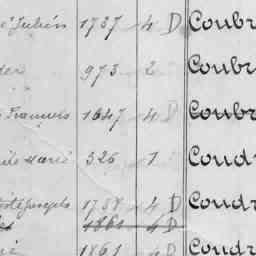 Julien 1737 4 D Coubr
der 973 2 Coubr
François 1647 4 D Coubr
Marie 326 1 Coudr
Joseph 1758 4 D Coudr
1861 4 D
1861 4 D Coudr